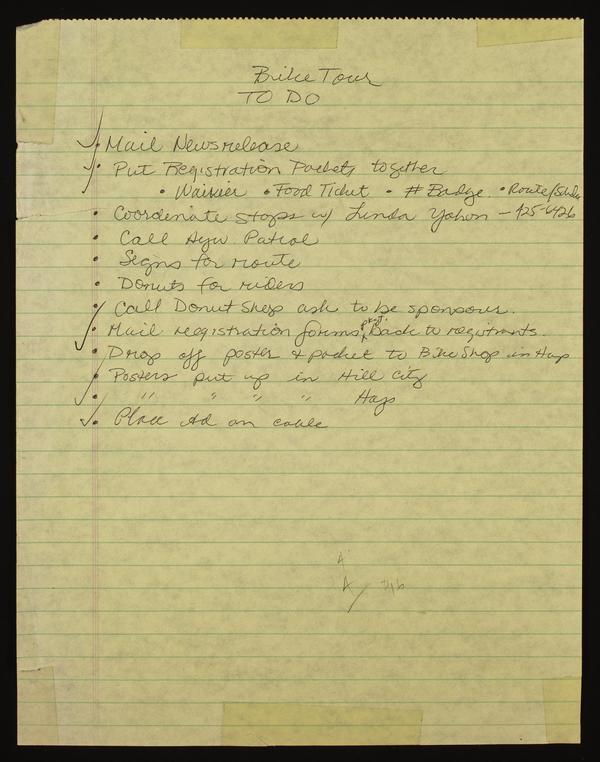 Bike Tour
TO DO
• Mail Newsrelease
• Put Registration Packets together
• Waivier • Food Ticket • # Badge • Route/
• Coordenate stops w/ Linda Yohon - 425-6426
• Call Hyw. Patrol
• Segns for route
• Donuts for riders
• Call Donut Shop ask to be sponsour.
• Mail registration forms, Back to registrants
• Drop off poster & packet to Bike Shop in Hays
• Posters put up in Hill City
• " " " " Hays
• Place Ad on cable